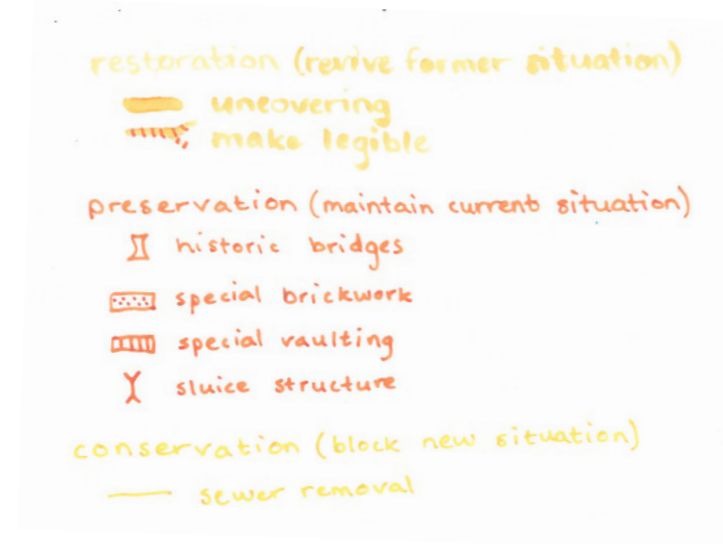 restoration (revive former situation)
uncovering
make legible
preservation (maintain current situation)
historic bridges
special brickwork
special vaulting
sluice structure
conservation (block new situation)
sewer removal